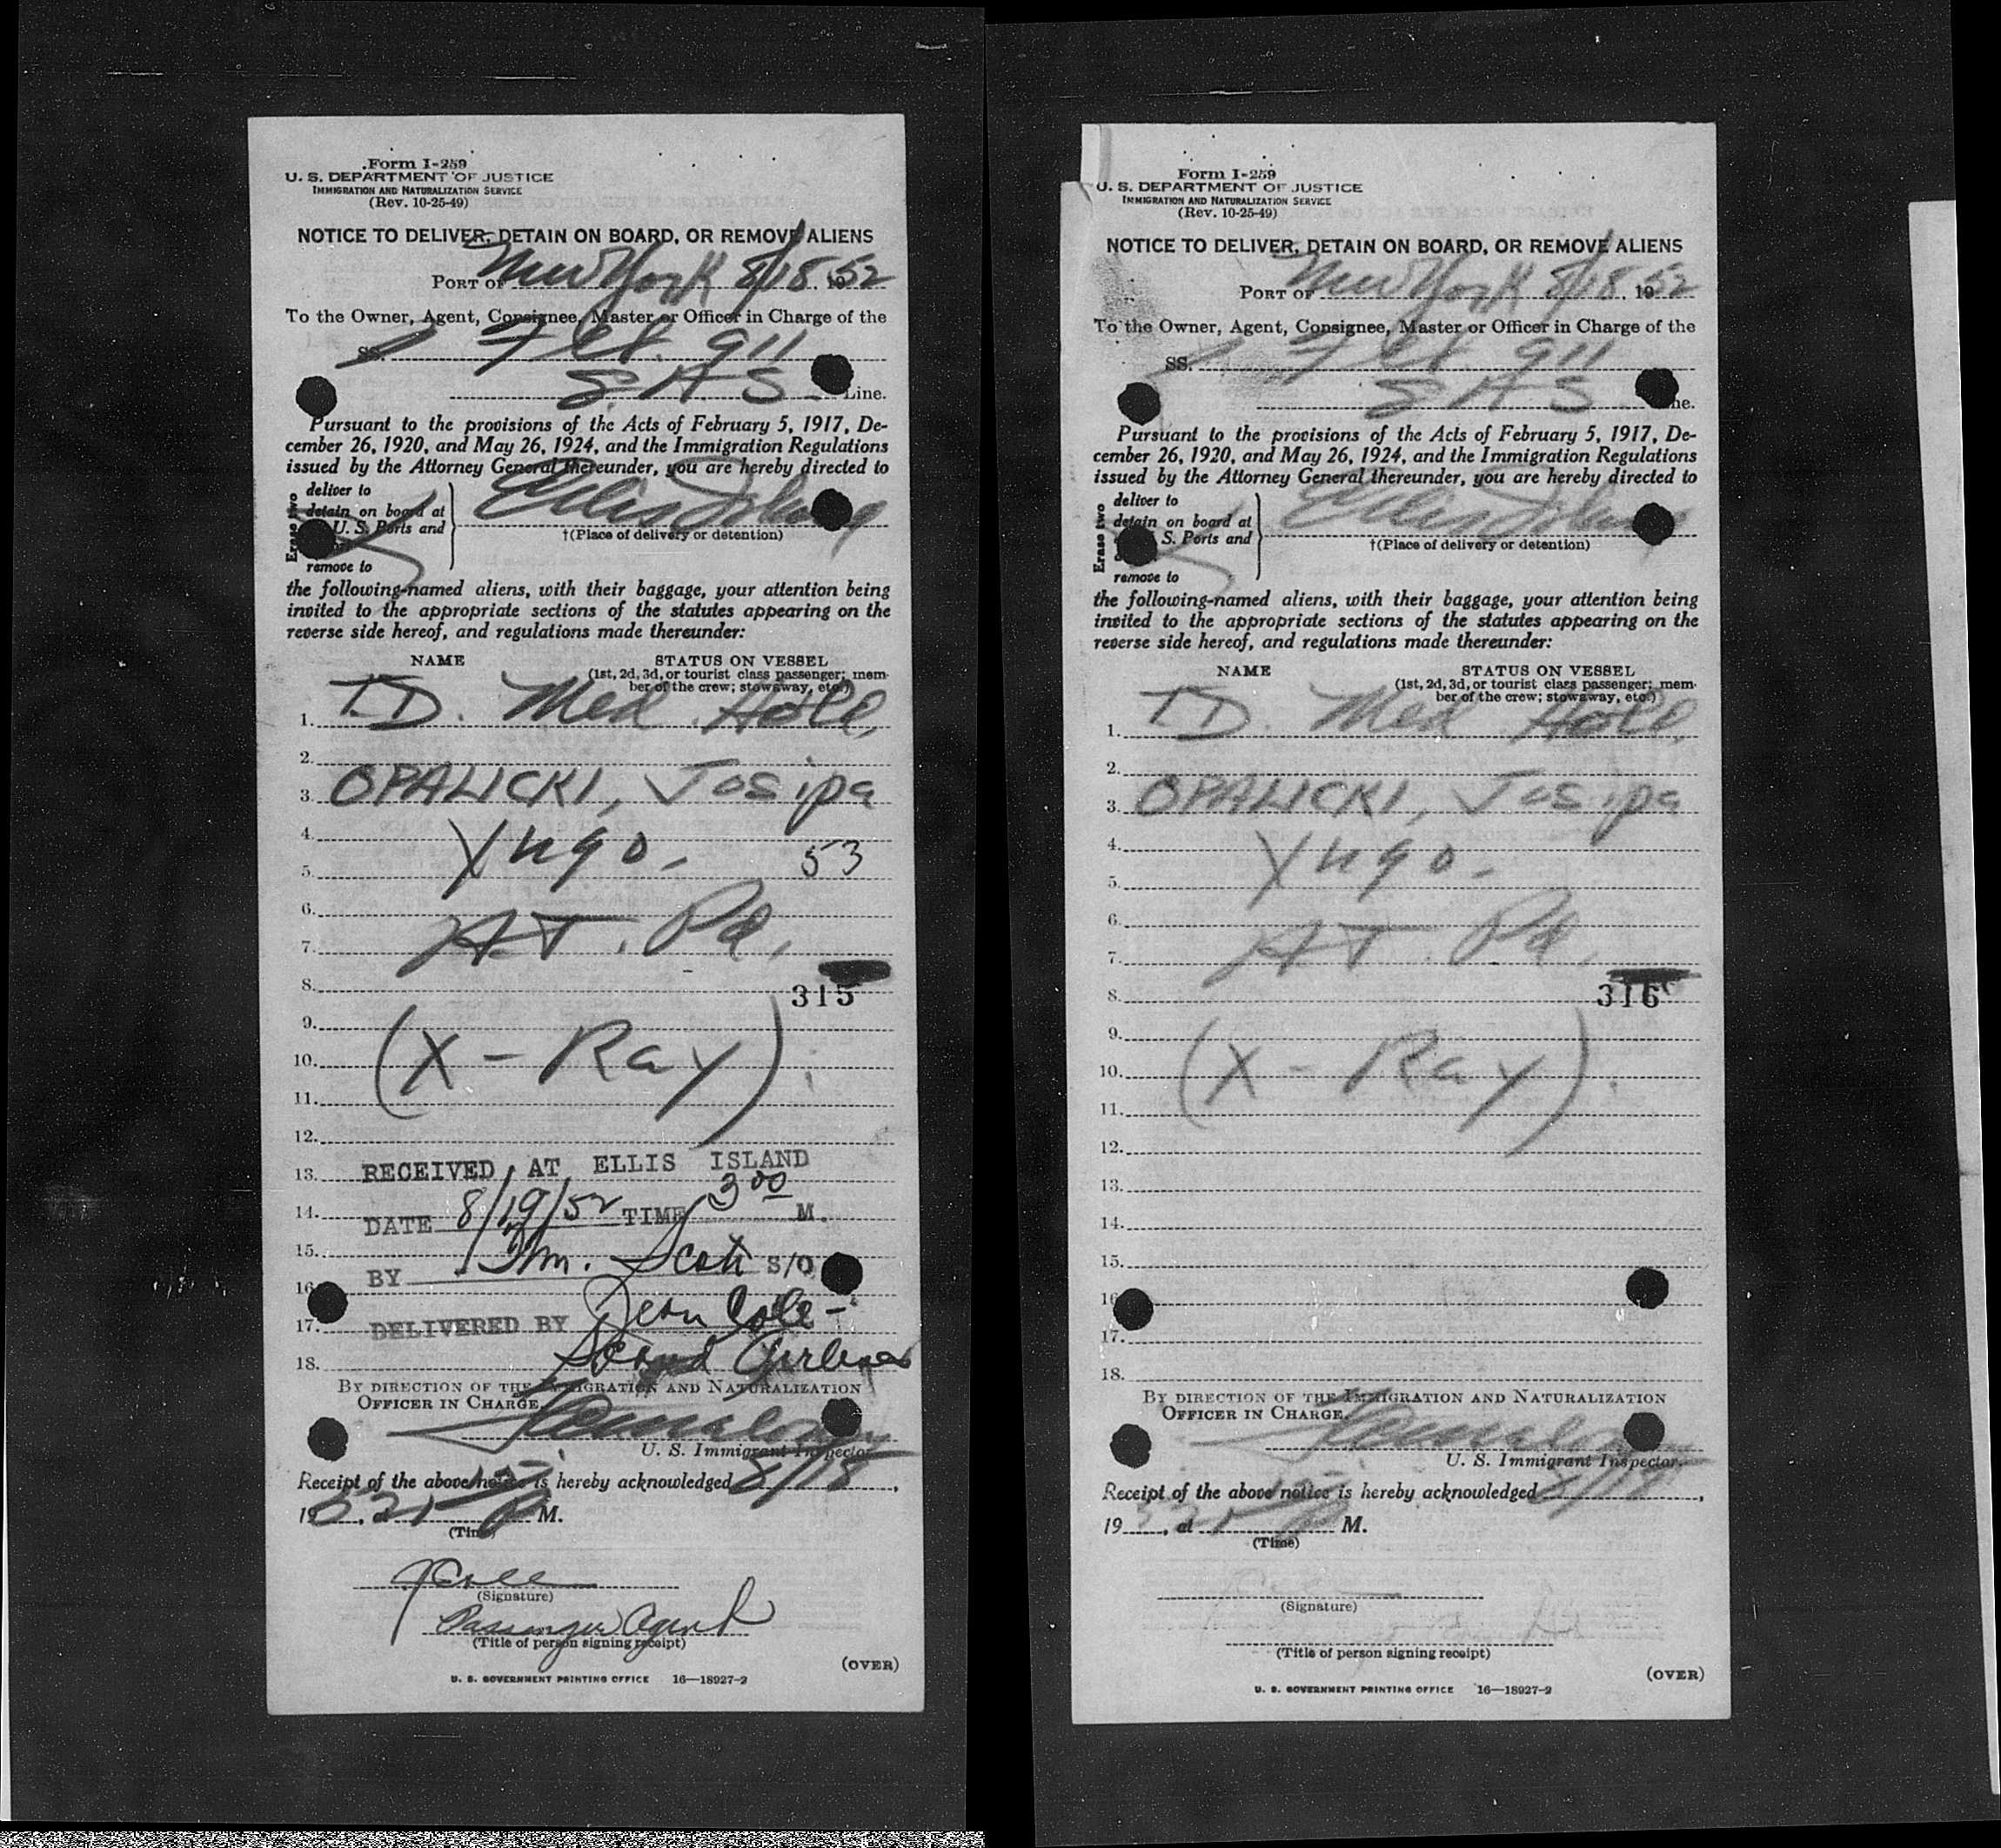 Form I-259
U. S. DEPARTMENT OF JUSTICE
IMMIGRATION AND NATURALIZATION SERVICE
(Rev. 10-25-49)
NOTICE TO DELIVER, DETAIN ON BOARD, OR REMOVE ALIENS
PORT OF New York 8/18, 1952
To the Owner, Agent, Consignee, Master or Officer in Charge of the
SS. Flt. 911
S.A.S. Line.
Pursuant to the provisions of the Acts of February 5, 1917, De-
cember 26, 1920, and May 26, 1924, and the Immigration Regulations
issued by the Attorney General thereunder, you are hereby directed to
Erase two
deliver to
detain on board at
U. S. Ports and
remove to
Ellis Island
†(Place of delivery or detention)
the following-named aliens, with their baggage, your attention being
invited to the appropriate sections of the statutes appearing on the
reverse side hereof, and regulations made thereunder:
NAME STATUS ON VESSEL
(1st, 2d, 3d, or tourist class passenger; mem-
ber of the crew; stowaway, etc.)
1. T.D. Med Hold,
2.
3. OPALICKI, Josipa
4.
5. Yugo. 53
6.
7. H.T. Pd.
8. 315
9.
10. (X-Ray)
11.
12.
13. RECEIVED AT ELLIS ISLAND
14. DATE 8/19/52 TIME 3 00 M.
15.
BY Wm. Scott S/O
16.
17. DELIVERED BY Jean Cole -
18. Scand Airlines
BY DIRECTION OF THE IMMIGRATION AND NATURALIZATION
OFFICER IN CHARGE.
U. S. Immigrant Inspector.
Receipt of the above notice is hereby acknowledged 8/18,
19 52, at M.
(Time)
(Signature)
Passenger Agent
(Title of person signing receipt)
(OVER)
U. S. GOVERNMENT PRINTING OFFICE 16—18927-2
Form I-259
U. S. DEPARTMENT OF JUSTICE
IMMIGRATION AND NATURALIZATION SERVICE
(Rev. 10-25-49)
NOTICE TO DELIVER, DETAIN ON BOARD, OR REMOVE ALIENS
PORT OF New York 8/18, 1952
To the Owner, Agent, Consignee, Master or Officer in Charge of the
SS. Flt. 911
S.A.S Line.
Pursuant to the provisions of the Acts of February 5, 1917, De-
cember 26, 1920, and May 26, 1924, and the Immigration Regulations
issued by the Attorney General thereunder, you are hereby directed to
Erase two
deliver to
detain on board at
S. Ports and
remove to
Ellis Island
†(Place of delivery or detention)
the following-named aliens, with their baggage, your attention being
invited to the appropriate sections of the statutes appearing on the
reverse side hereof, and regulations made thereunder:
NAME STATUS ON VESSEL
(1st, 2d, 3d, or tourist class passenger; mem-
ber of the crew; stowaway, etc.)
1. T.D. Med Hold,
2.
3. OPALICKI, Josipa
4.
5. Yugo.
6.
7. H.T. Pd.
8. 316
9.
10. (X-Ray)
11.
12.
13.
14.
15.
16
17.
18.
BY DIRECTION OF THE IMMIGRATION AND NATURALIZATION
OFFICER IN CHARGE.
U. S. Immigrant Inspector.
Receipt of the above notice is hereby acknowledged 8/18,
19, at M.
(Time)
(Signature)
(Title of person signing receipt)
(OVER)
U. S. GOVERNMENT PRINTING OFFICE 16—18927-2